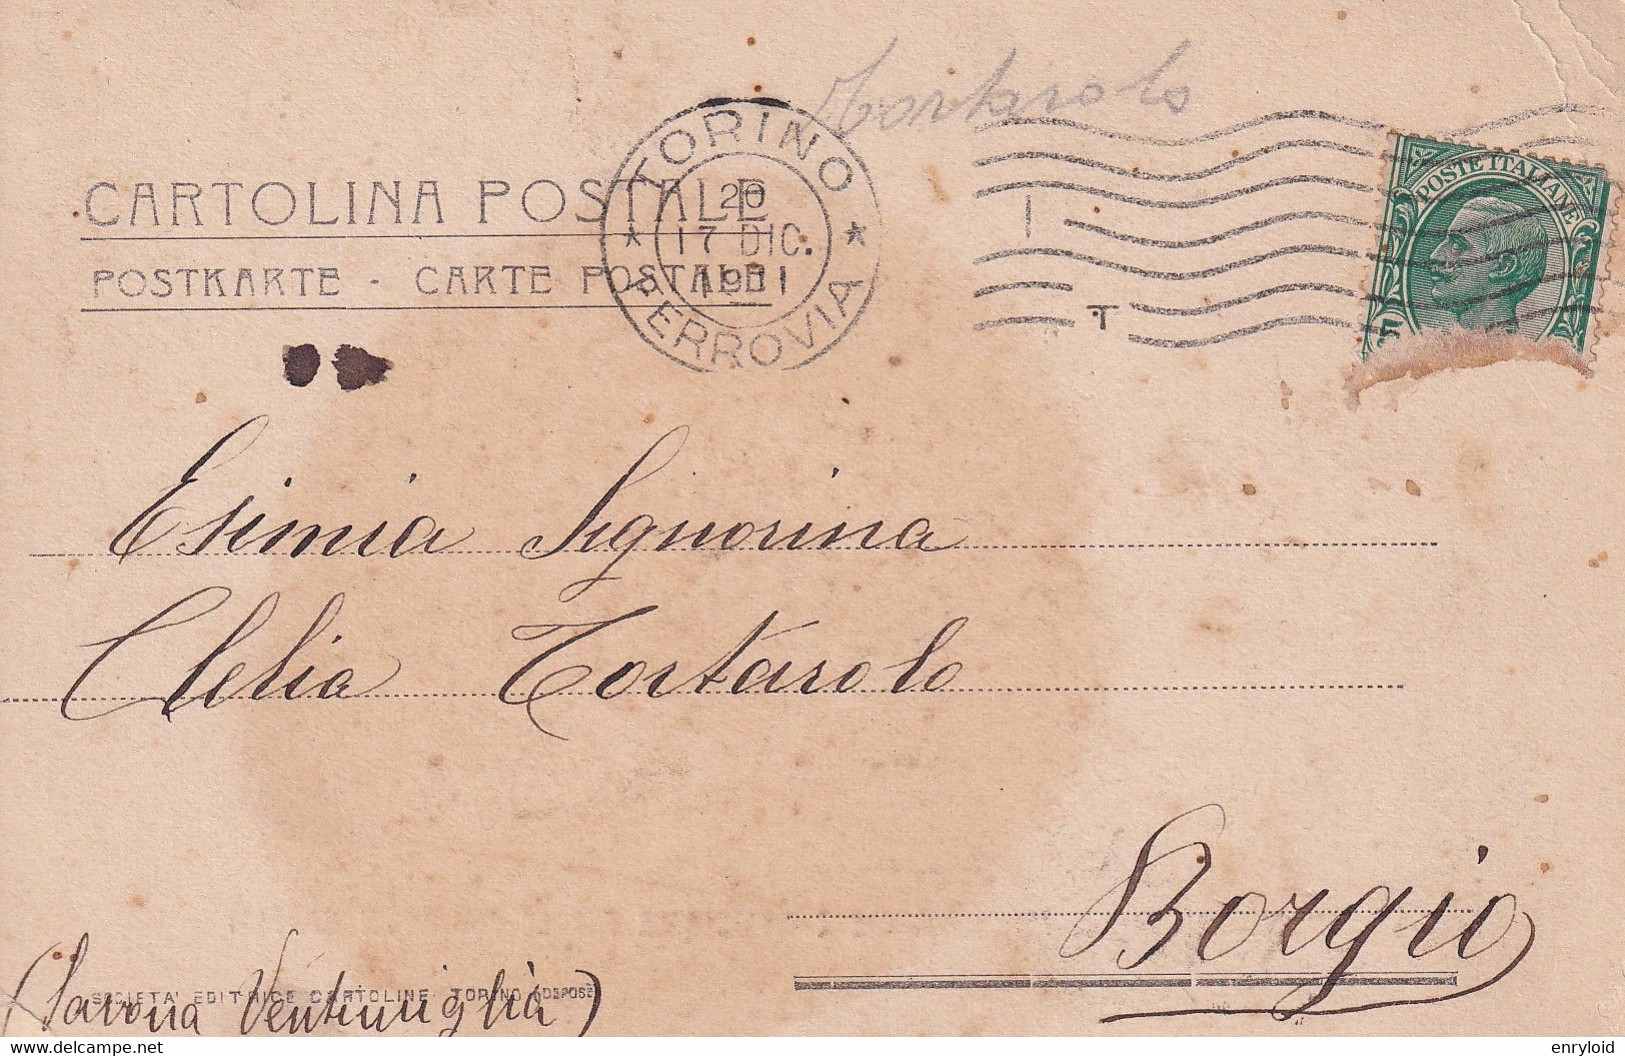 Tortarolo
TORINO
FERROVIA
20
17 DIC.
1911
T
POSTE ITALIANE
5
CARTOLINA POSTALE
POSTKARTE - CARTE POSTALE
Esimia Signorina
Clelia Tortarolo
Borgio
(Savona Ventimiglia)
SOCIETA' EDITRICE CARTOLINE TORINO (DEPOSE)
delcampe.net
enryloid